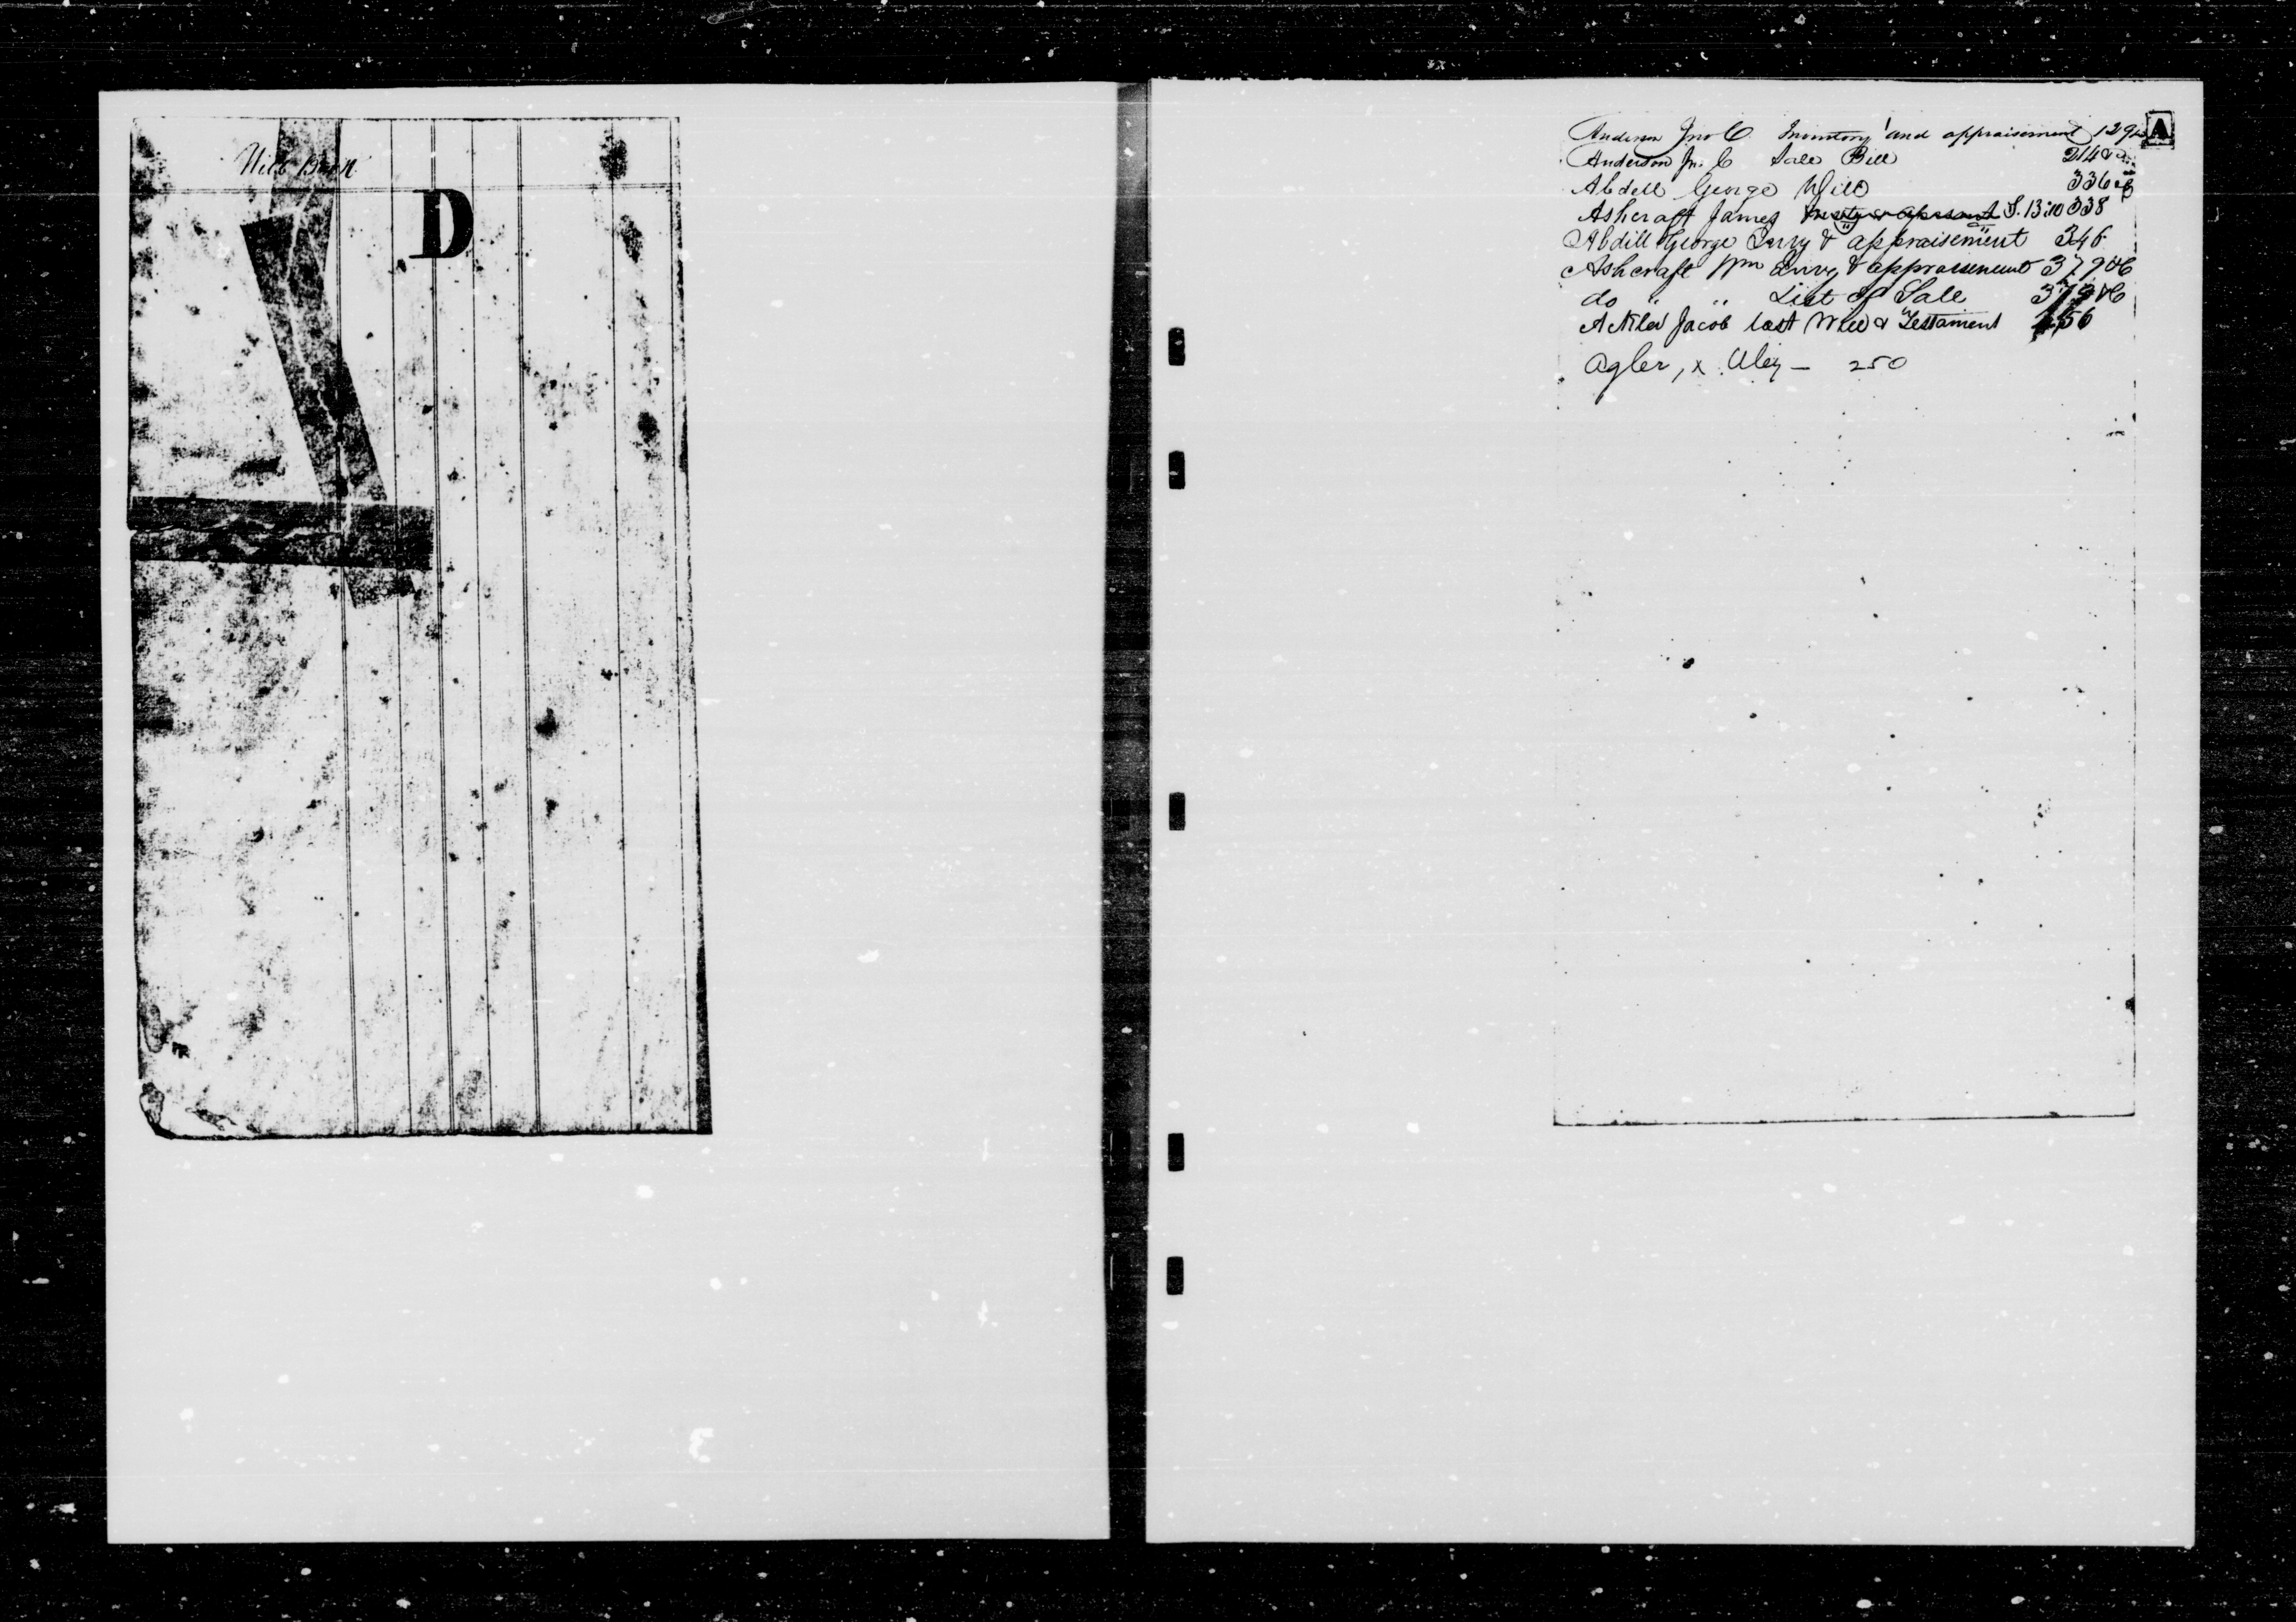 Will Book
D
A
Anderson Jno C Inventory and appraisement 129
Anderson Jn. C Sale Bill 214 &
Abdell George Will 336
Ashcraft James S. Bill 338
Abdill George Invy & appraisement 346
Ashcraft Wm Invy & appraisement 379 &c
do " " List of Sale 379 &c
Jacob last Will & Testament 456
Agler, x Aley — 250